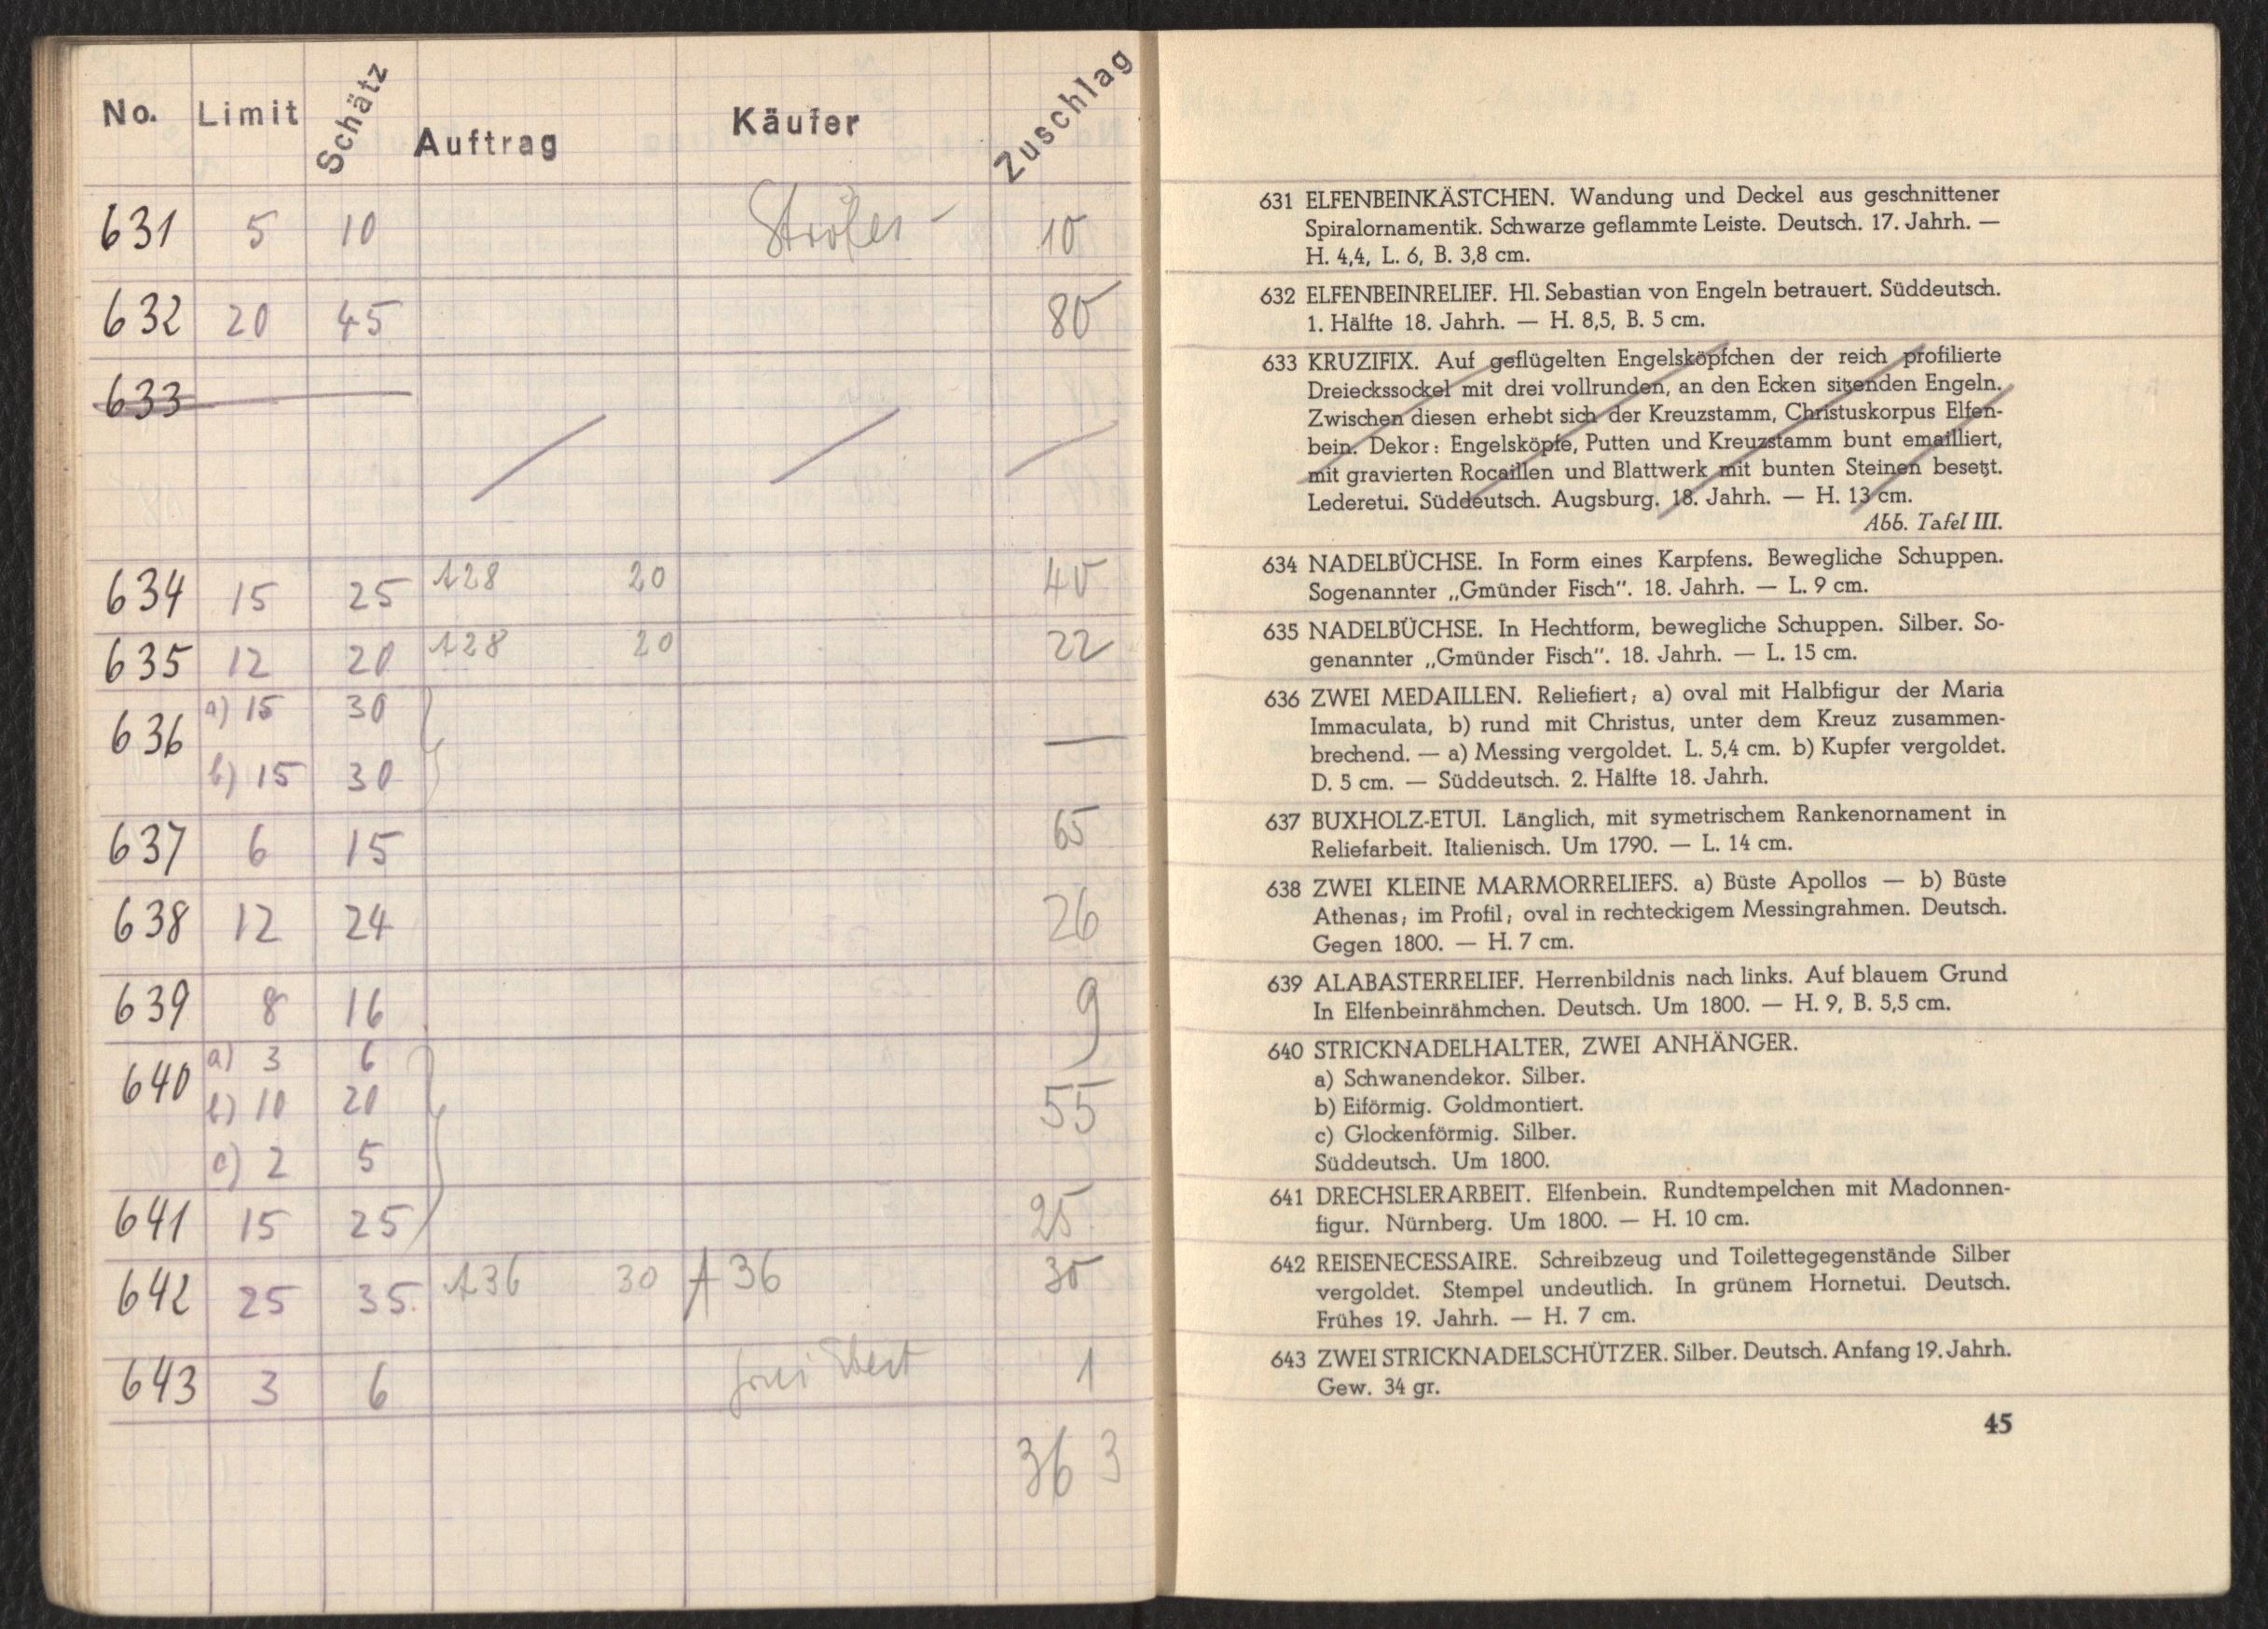 No. Limit Schätz Auftrag Käufer Zuschlag
631 5 10 10
632 20 45 80
633
634 15 25 128 20 40
635 12 20 128 20 22
636 a) 15 30
b) 15 30
637 6 15 65
638 12 24 26
639 8 16 9
640 a) 3 6
b) 10 20 55
c) 2 5
641 15 25 25
642 25 35 A36 30 A 36 30
643 3 6 1
363
631 ELFENBEINKÄSTCHEN. Wandung und Deckel aus geschnittener
Spiralornamentik. Schwarze geflammte Leiste. Deutsch. 17. Jahrh. —
H. 4,4, L. 6, B. 3,8 cm.
632 ELFENBEINRELIEF. Hl. Sebastian von Engeln betrauert. Süddeutsch.
1. Hälfte 18. Jahrh. — H. 8,5, B. 5 cm.
633 KRUZIFIX. Auf geflügelten Engelsköpfchen der reich profilierte
Dreieckssockel mit drei vollrunden, an den Ecken sitzenden Engeln.
Zwischen diesen erhebt sich der Kreuzstamm, Christuskorpus Elfen-
bein. Dekor: Engelsköpfe, Putten und Kreuzstamm bunt emailliert,
mit gravierten Rocaillen und Blattwerk mit bunten Steinen besetzt.
Lederetui. Süddeutsch. Augsburg. 18. Jahrh. — H. 13 cm.
Abb. Tafel III.
634 NADELBÜCHSE. In Form eines Karpfens. Bewegliche Schuppen.
Sogenannter „Gmünder Fisch". 18. Jahrh. — L. 9 cm.
635 NADELBÜCHSE. In Hechtform, bewegliche Schuppen. Silber. So-
genannter „Gmünder Fisch". 18. Jahrh. — L. 15 cm.
636 ZWEI MEDAILLEN. Reliefiert; a) oval mit Halbfigur der Maria
Immaculata, b) rund mit Christus, unter dem Kreuz zusammen-
brechend. — a) Messing vergoldet. L. 5,4 cm. b) Kupfer vergoldet.
D. 5 cm. — Süddeutsch. 2. Hälfte 18. Jahrh.
637 BUXHOLZ-ETUI. Länglich, mit symetrischem Rankenornament in
Reliefarbeit. Italienisch. Um 1790. — L. 14 cm.
638 ZWEI KLEINE MARMORRELIEFS. a) Büste Apollos — b) Büste
Athenas; im Profil; oval in rechteckigem Messingrahmen. Deutsch.
Gegen 1800. — H. 7 cm.
639 ALABASTERRELIEF. Herrenbildnis nach links. Auf blauem Grund
In Elfenbeinrähmchen. Deutsch. Um 1800. — H. 9, B. 5,5 cm.
640 STRICKNADELHALTER, ZWEI ANHÄNGER.
a) Schwanendekor. Silber.
b) Eiförmig. Goldmontiert.
c) Glockenförmig. Silber.
Süddeutsch. Um 1800.
641 DRECHSLERARBEIT. Elfenbein. Rundtempelchen mit Madonnen-
figur. Nürnberg. Um 1800. — H. 10 cm.
642 REISENECESSAIRE. Schreibzeug und Toilettegegenstände Silber
vergoldet. Stempel undeutlich. In grünem Hornetui. Deutsch.
Frühes 19. Jahrh. — H. 7 cm.
643 ZWEI STRICKNADELSCHÜTZER. Silber. Deutsch. Anfang 19. Jahrh.
Gew. 34 gr.
45